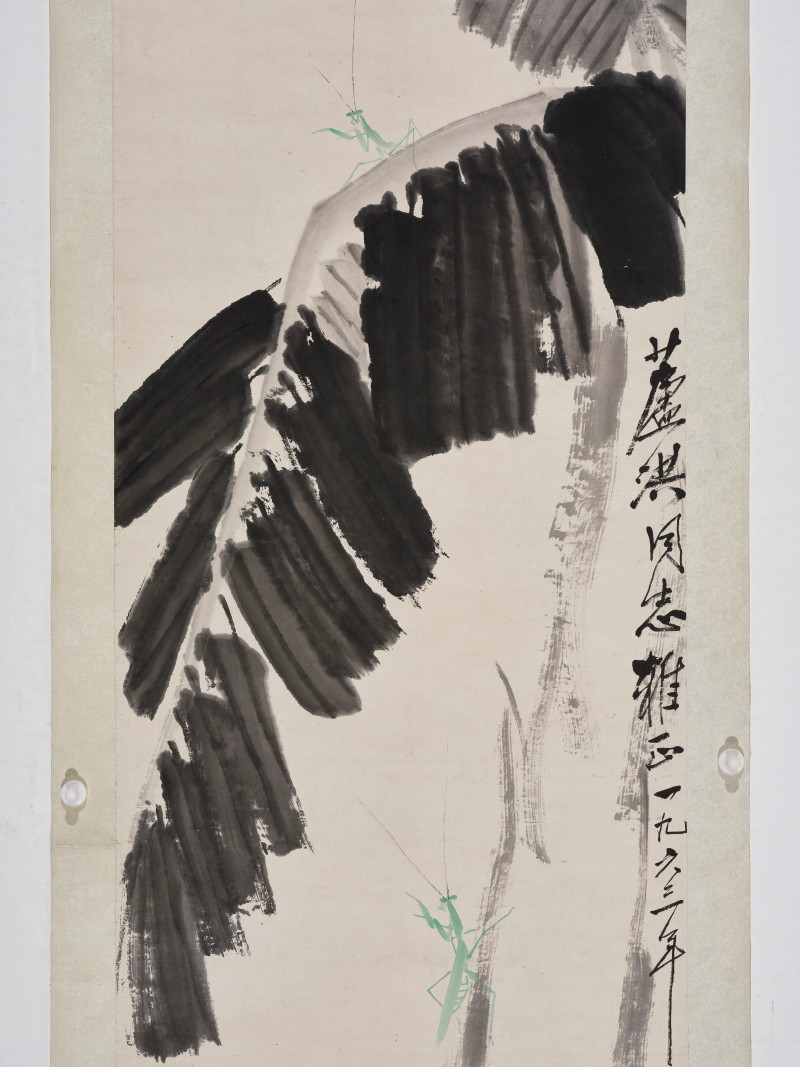 蘆洪同志雅正一九六三年